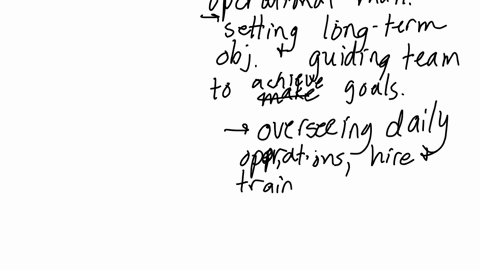 operational man.
→ setting long-term
obj. & guiding team
to achieve goals.
→ overseeing daily
operations, hire &
train